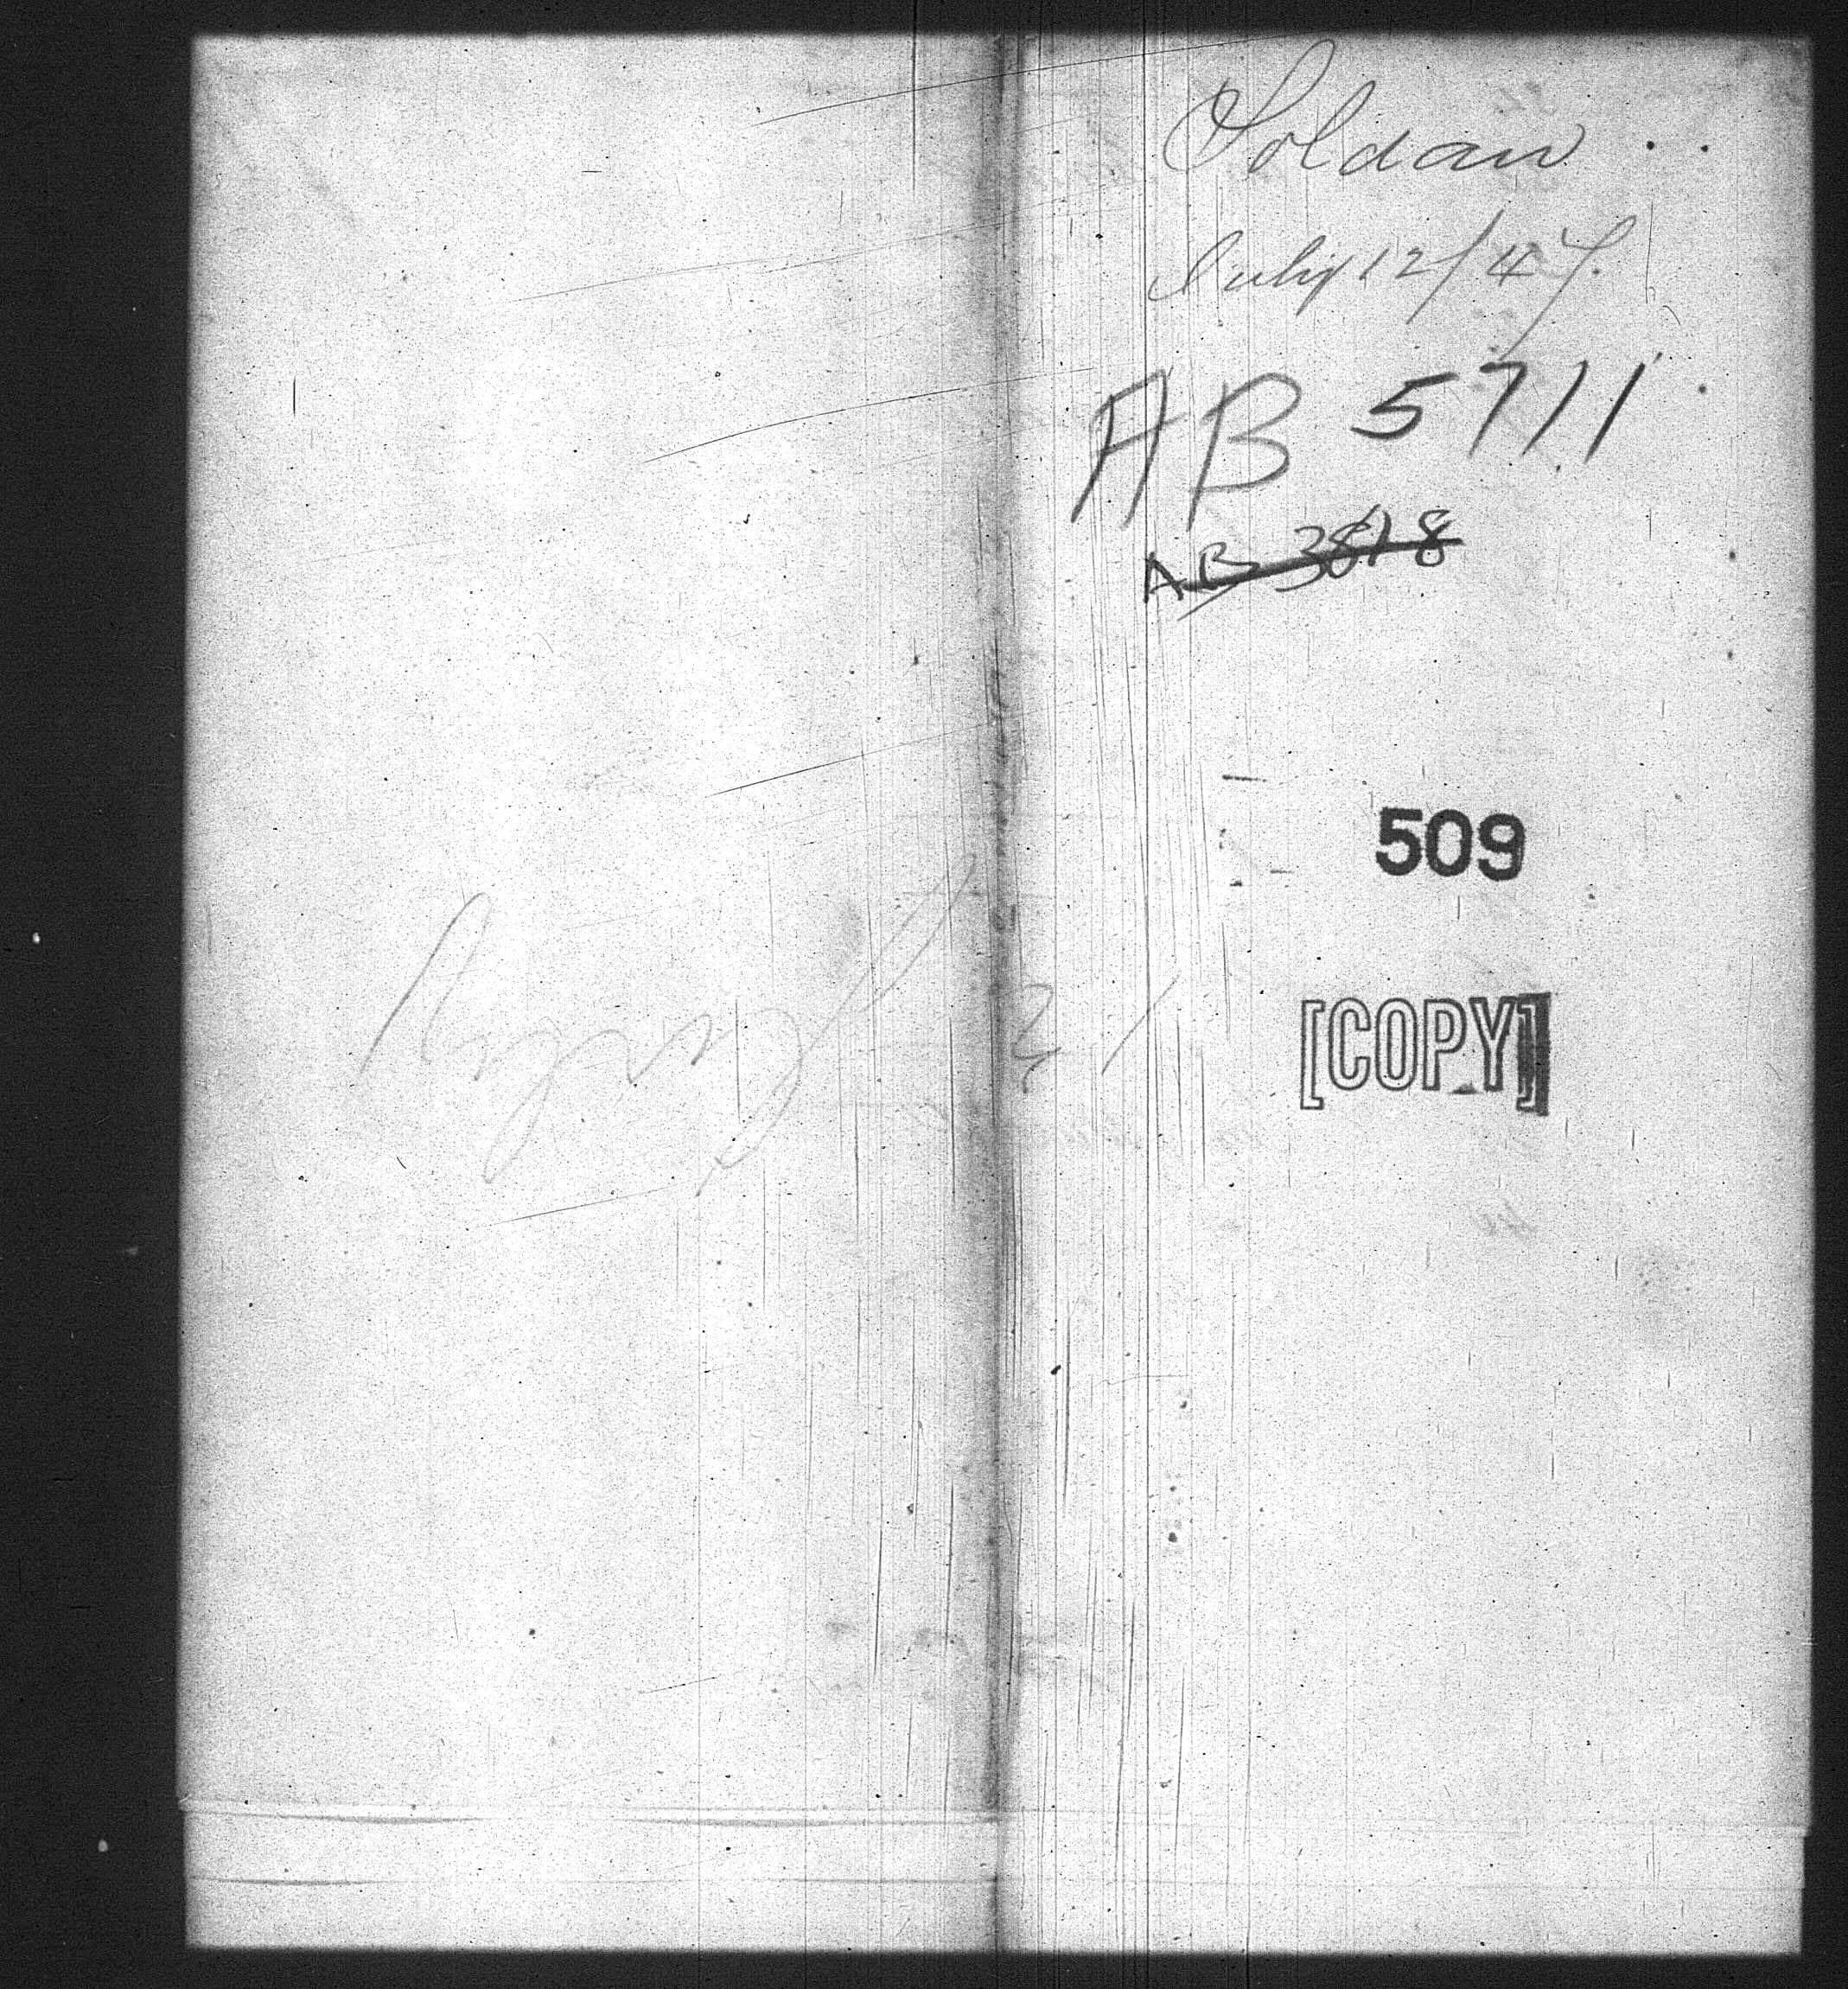 Soldan
July 12/47
AB 5711
AB 3818
509
[COPY]
21